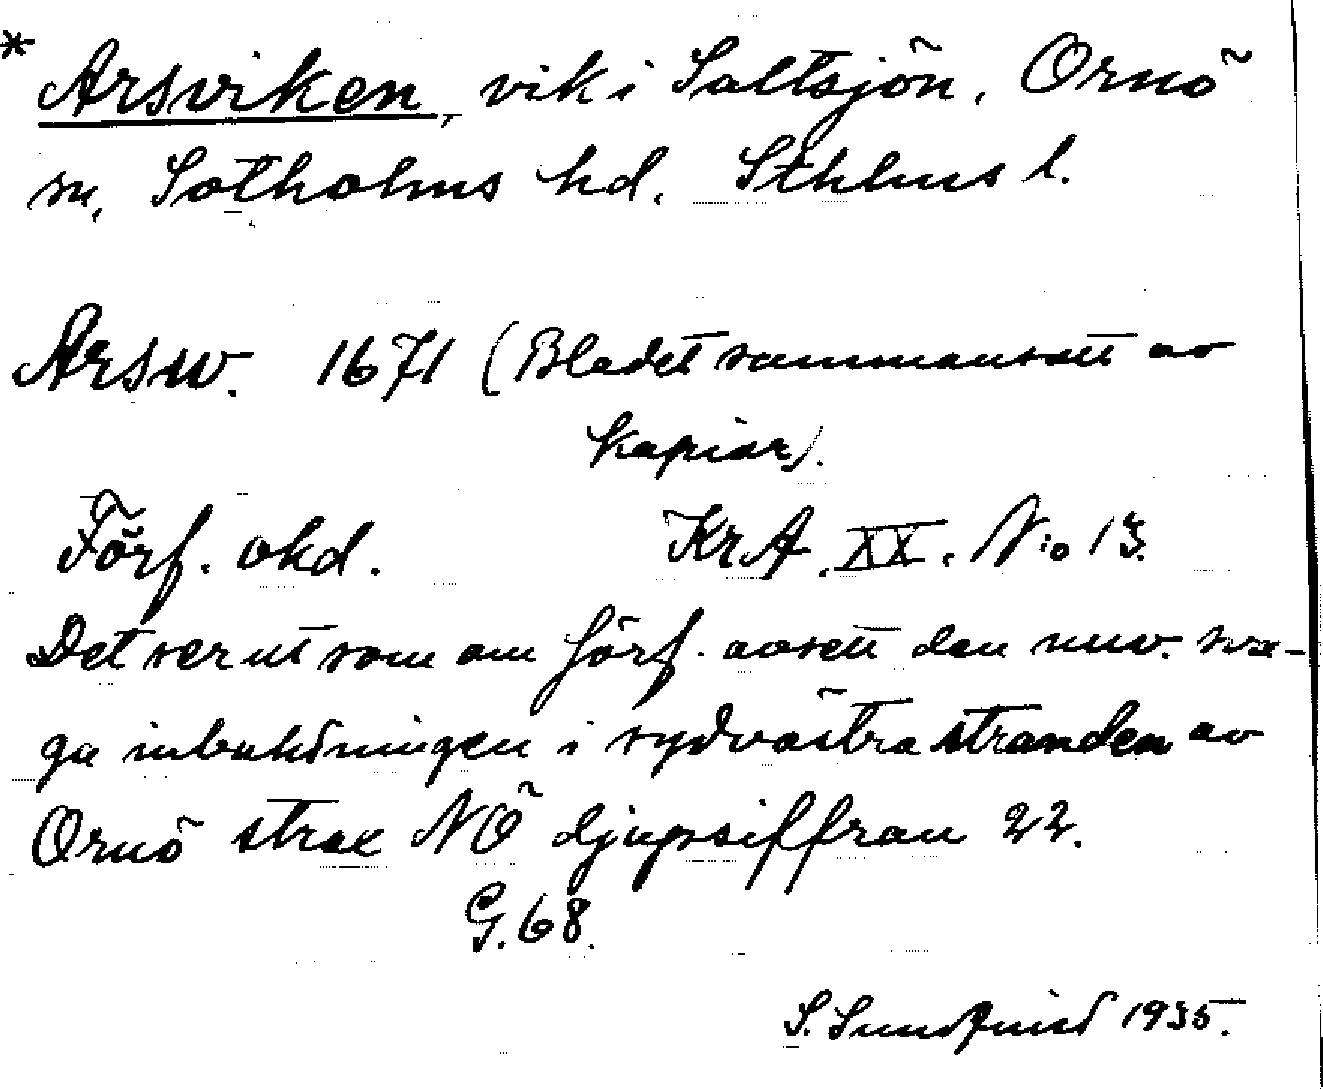 * Arsviken, vik i Saltsjön, Ornö
sn, Sotholms hd. Sthlms l.
Arsw. 1671 (Bladet sammansatt av
kopior).
Förf. okd. KrA. XX. N:o 13.
Det ser ut som om förf. avsett den nuv. sva-
ga inbuktningen i sydvästra stranden av
Ornö strax NÖ djupsiffran 22.
G. 68.
S. Sundquist 1935.